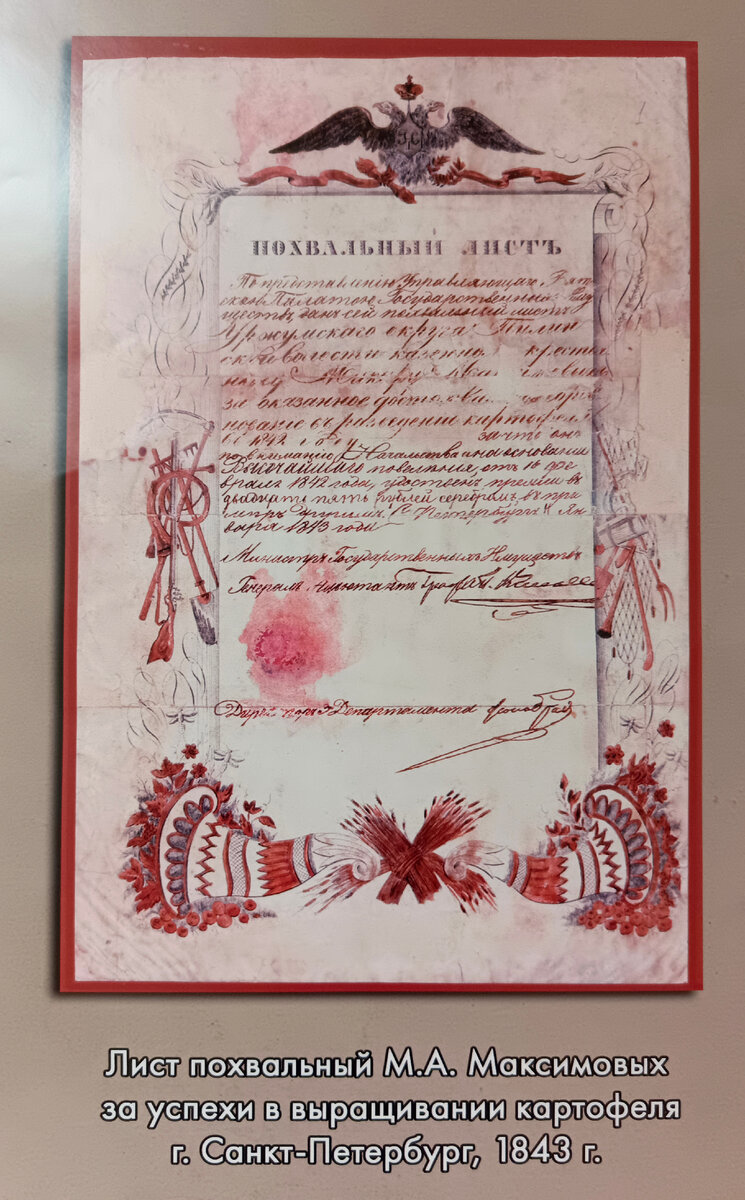 ПОХВАЛЬНЫЙ ЛИСТЪ
По представленію Управляющаго Вят-
скою Палатою Государственныхъ Иму
ществъ, данъ сей похвальный листъ
Уржумскаго округа Пилин
ской волости казенно крестья
нину
за оказанное
нованіе въ разведеніи картофеля
въ 1842 году за что онъ
по вниманію Начальства и на основаніи
Высочайшаго повелѣнія, отъ 16 фе
враля 1842 года, удостоенъ преміи въ
двадцать пять рублей серебромъ, въ при
мѣръ другимъ. С. Петербургъ Ян
варя 1843 года
Министръ Государственныхъ Имуществъ
Генералъ Адъютантъ Графъ П. Киселевъ
Директоръ Департамента
Лист похвальный М.А. Максимовых
за успехи в выращивании картофеля
г. Санкт-Петербург, 1843 г.